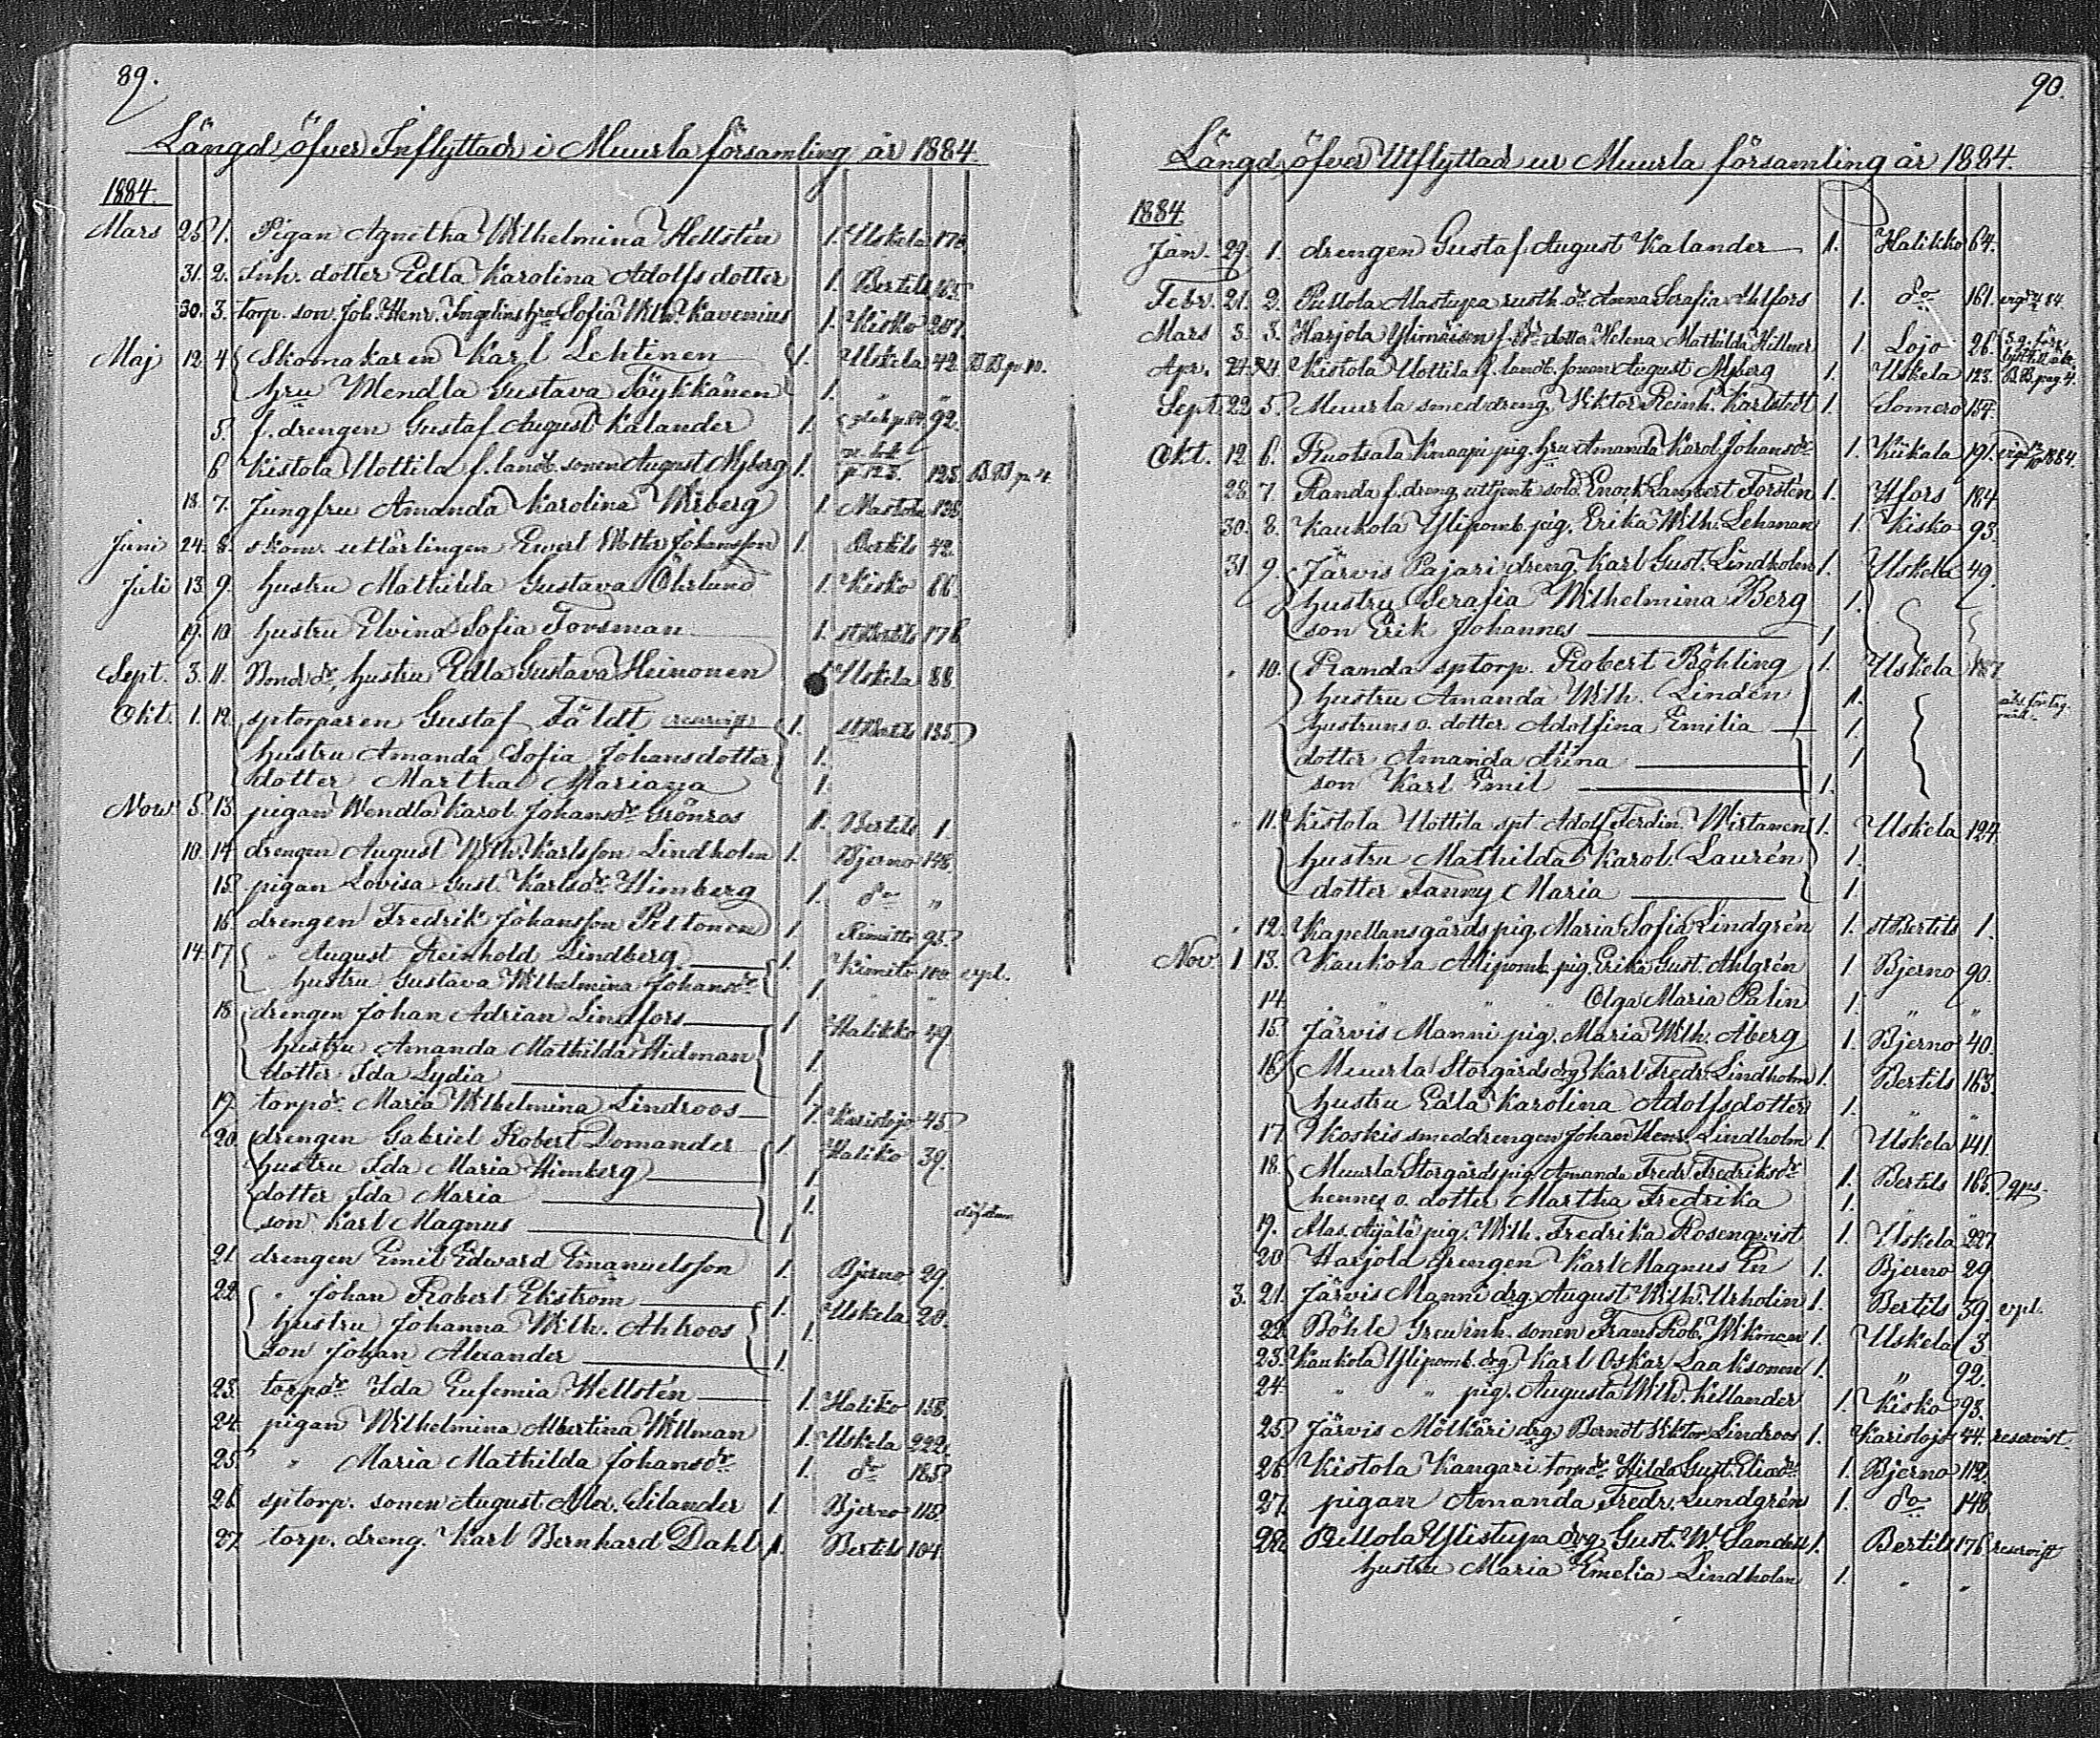 89.
Längd öfver Inflyttade i Muurla församling år 1884.
1884.
Mars 25. 1. Pigan Agnetha Wilhelmina Hellstén 1. Uskela 178.
31. 2. Inh. dotter Edla Karolina Adolfsdotter 1. Bertils 165.
30. 3. torp. son. Joh. Henr. Ingelins hru Sofia Wilh. Kavenius 1. Kisko 207.
Maj 12. 4. Skomakaren Karl Lehtinen 1. Uskela 42. B.B. p. 10.
hru Wendla Gustava Töykkänen 1. " "
5. f. drengen Gustaf August Kalander 1. 92.
6 Kistola Uottila f. landb. sonen August Myberg 1. p. 123. 123. B.B. p. 4.
18. 7. Jungfru Amanda Karolina Wiberg 1. 138
Juni 24. 8. skom. utlärlingen Johansson 1. Bertils 42.
Juli 13. 9. hustru Mathilda Gustava Öhrlund 1. Kisko 66.
19. 10 hustru Elvina Sofia Forsman 1. St Bertils 176
Sept. 3. 11. Bond. dr. hustru Edla Gustava Heinonen 1. Uskela 88.
Okt. 1. 12. sptorparen Gustaf Fäldt reservist 1. St Bertils 135.
hustru Amanda Sofia Johansdotter 1.
dotter Martha Mariana 1.
Nov. 5. 13. pigan Wendla Karol. Johansdr Grönroos 1. Bertils 1.
10. 14. drengen August Wilh. Karlsson Lindholm 1. Bjerno 148.
15. pigan Lovisa Gust. Karlsdr Himberg 1. do "
16. drengen Fredrik Johansson Peltonen 1. Kimitto 95.
14. 17. " August Reinhold Lindberg 1. Kimito 100. expl.
hustru Gustava Wilhelmina Johansdr 1. " "
18. drengen Johan Adrian Lindfors 1. Halikko 49.
hustru Amanda Mathilda Widman 1.
dotter Ida Lydia 1.
19. torpdr. Maria Wilhelmina Lindroos 1. Karislojo 45.
20. drengen Gabriel Robert Domander 1. Haliko 39.
hustru Ida Maria Himberg 1.
dotter Ida Maria 1.
son Karl Magnus 1.
21. drengen Emil Edward Emanuelsson 1. Bjerno 29.
22. " Johan Robert Ekström 1. Uskela 20.
hustru Johanna Wilh. Ahlroos 1.
son Johan Alexander 1.
23. torpdr Ida Eufemia Hellstén 1. Haliko 158.
24. pigan Wilhelmina Albertina Willman 1. Uskela 222.
25. " Maria Mathilda Johansdr 1. do 185.
26. sptorp. sonen August Alex. Silander 1. Bjerno 118.
27. torp. dreng. Karl Bernhard Dahl 1. Bertils 104.
90.
Längd öfver Utflyttade ur Muurla församling år 1884.
1884.
Jan. 29. 1. drengen Gustaf August Kalander 1. Halikko 64.
Febr. 21. 2. Pullola Alastupa rusth. dr. Anna Serafia Ahlfors 1. do 161.
Mars 3. 3. Harjola f. dotter Helena Mathilda Hillner 1. Lojo 26.
Apr. 24. 4. Kistola Uottila f. landb. sonen August Myberg 1. Uskela 123. B.B. pag. 4.
Sept. 22 5. Muurla smeddreng. Viktor Reinh. Karlstedt 1. Somero 154.
Okt. 12. 6. Ruotsala Knaapi pig. hru Amanda Karol. Johansdr 1. Kiikala 191.
28. 7. Randa f. dreng. uttjente sold. Enock Lambert Forstén 1. Hfors 184
30. 8. Kaukola Ylipomb. pig. Erika Wilh. Lehman 1. Kisko 93.
31. 9. Järvis Pajari dreng. Karl Gust. Lindholm 1. Uskela 49.
hustru Serafia Wilhelmina Berg 1.
son Erik Johannes 1.
" 10. Randa sptorp. Robert Böhling 1. Uskela 187
hustru Amanda Wilh. Lindén 1.
hustruns o. dotter Adolfina Emilia 1
dotter Amanda Irina 1
son Karl Emil 1.
" 11. Kistola Uottila spt. Adolf Ferdin. Wirtanen 1. Uskela 124.
hustru Mathilda Karol. Laurén 1.
dotter Fanny Maria 1.
" 12. Kapellansgårds pig. Maria Sofia Lindgrén 1. St Bertils 1.
Nov. 1 13. Kaukola Alipomb. pig. Erika Gust. Ahlgrén 1. Bjerno 90.
14. " " " Olga Maria Palin 1. " "
15. Järvis Manni pig. Maria Wilh. Åberg 1. Bjerno 40.
16. Muurla Storgårds drg. Karl Fredr. Lindholm 1. Bertils 163.
hustru Edla Karolina Adolfsdotter 1. " "
17. Koskis smeddrengen Johan Henr. Lindholm 1. Uskela 141.
18. Muurla Storgårds pig. Amanda Fredr. Fredriksdr 1. Bertils 165.
hennes o. dotter Martha Fredrika 1. "
19. Alas. Äijälä pig. Wilh. Fredrika Rosenqvist 1. Uskela 227.
20. Harjola drengen Karl Magnus En 1. Bjerno 29.
3. 21. Järvis Manni drg. August Wilh. Urholin 1. Bertils 39. expl.
22. Böhle Greu inh. sonen Frans Rob. Wikman 1. Uskela 3.
23. Kaukola Ylipomb. drg. Karl Oskar Laaksonen 1. " 92.
24. " " pig. Augusta Wilh. Killander 1. Kisko 93.
25. Järvis Mölkäri drg. Berndt Viktor Lindroos 1. Karislojo 44. reservist
26. Kistola Kangari torpdr. Hilda Gust. Eliaedr 1. Bjerno 112.
27. pigan Amanda Fredr. Lundgrén 1. do 148.
28. Pullola Ylistupa drg. Gust. W. Sandell 1. Bertils 176 reservist
hustru Maria Emelia Lindholm 1. " "